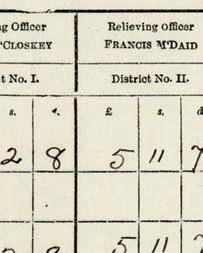 ng Officer Relieving Officer
'CLOSKEY FRANCIS M'DAID
t No. I. District No. II.
s. d. £ s. d
2 8 5 11 7
8 5 11 7